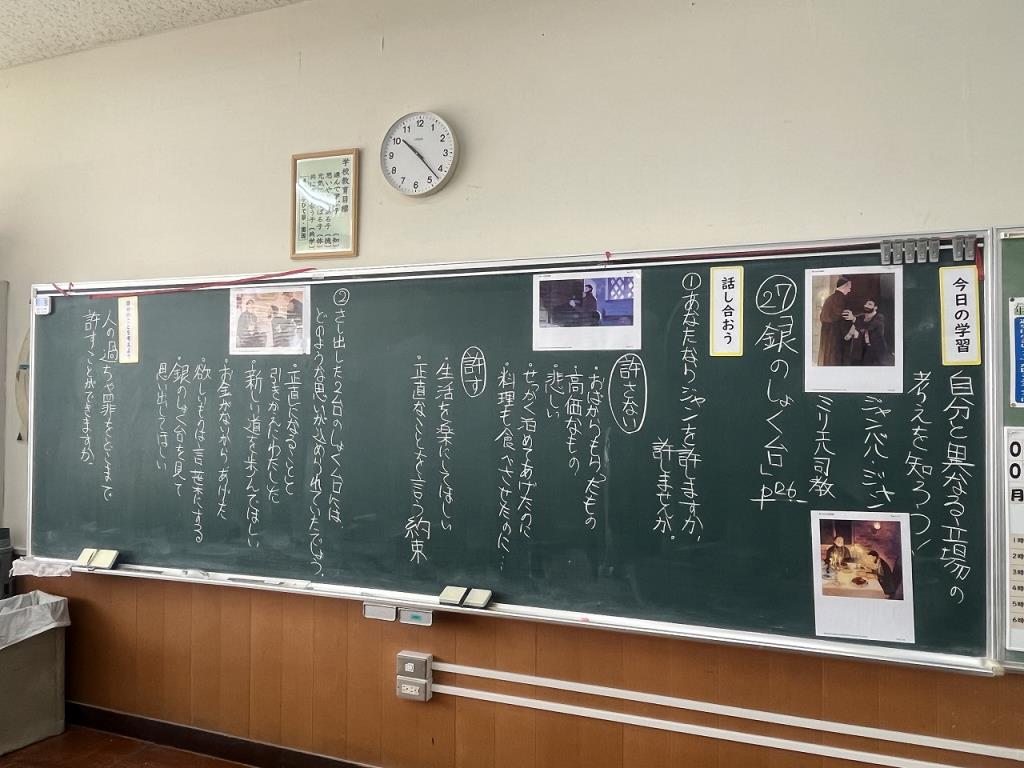 今日の学習
自分と異なる立場の
考えを知ろう!
ジャンバル・ジャン
ミリエル司教
㉗「銀のしょく台」p126
話し合おう
①あなたならジャンを許しますか、
許しませんか。
許さない
・おばからもらったもの
・高価なもの
・悲しい
・せっかく泊めてあげたのに
・料理も食べさせたのに…
許す
・生活を楽にしてほしい
・正直なことを言う約束
②さし出した2台のしょく台には
どのような思いが込められていたでしょう。
・正直になることと
引きかえにわたした
・新しい道を歩んでほしい
・お金がないから あげた
・欲しいものは言葉にする
・銀のしょく台を見て
思い出してほしい
人の過ちや罪をどこまで
許すことができますか。
学校教育目標
12
1
2
3
4
5
6
7
8
9
10
11
00月
1時
2時
3時
4時
5時
6時